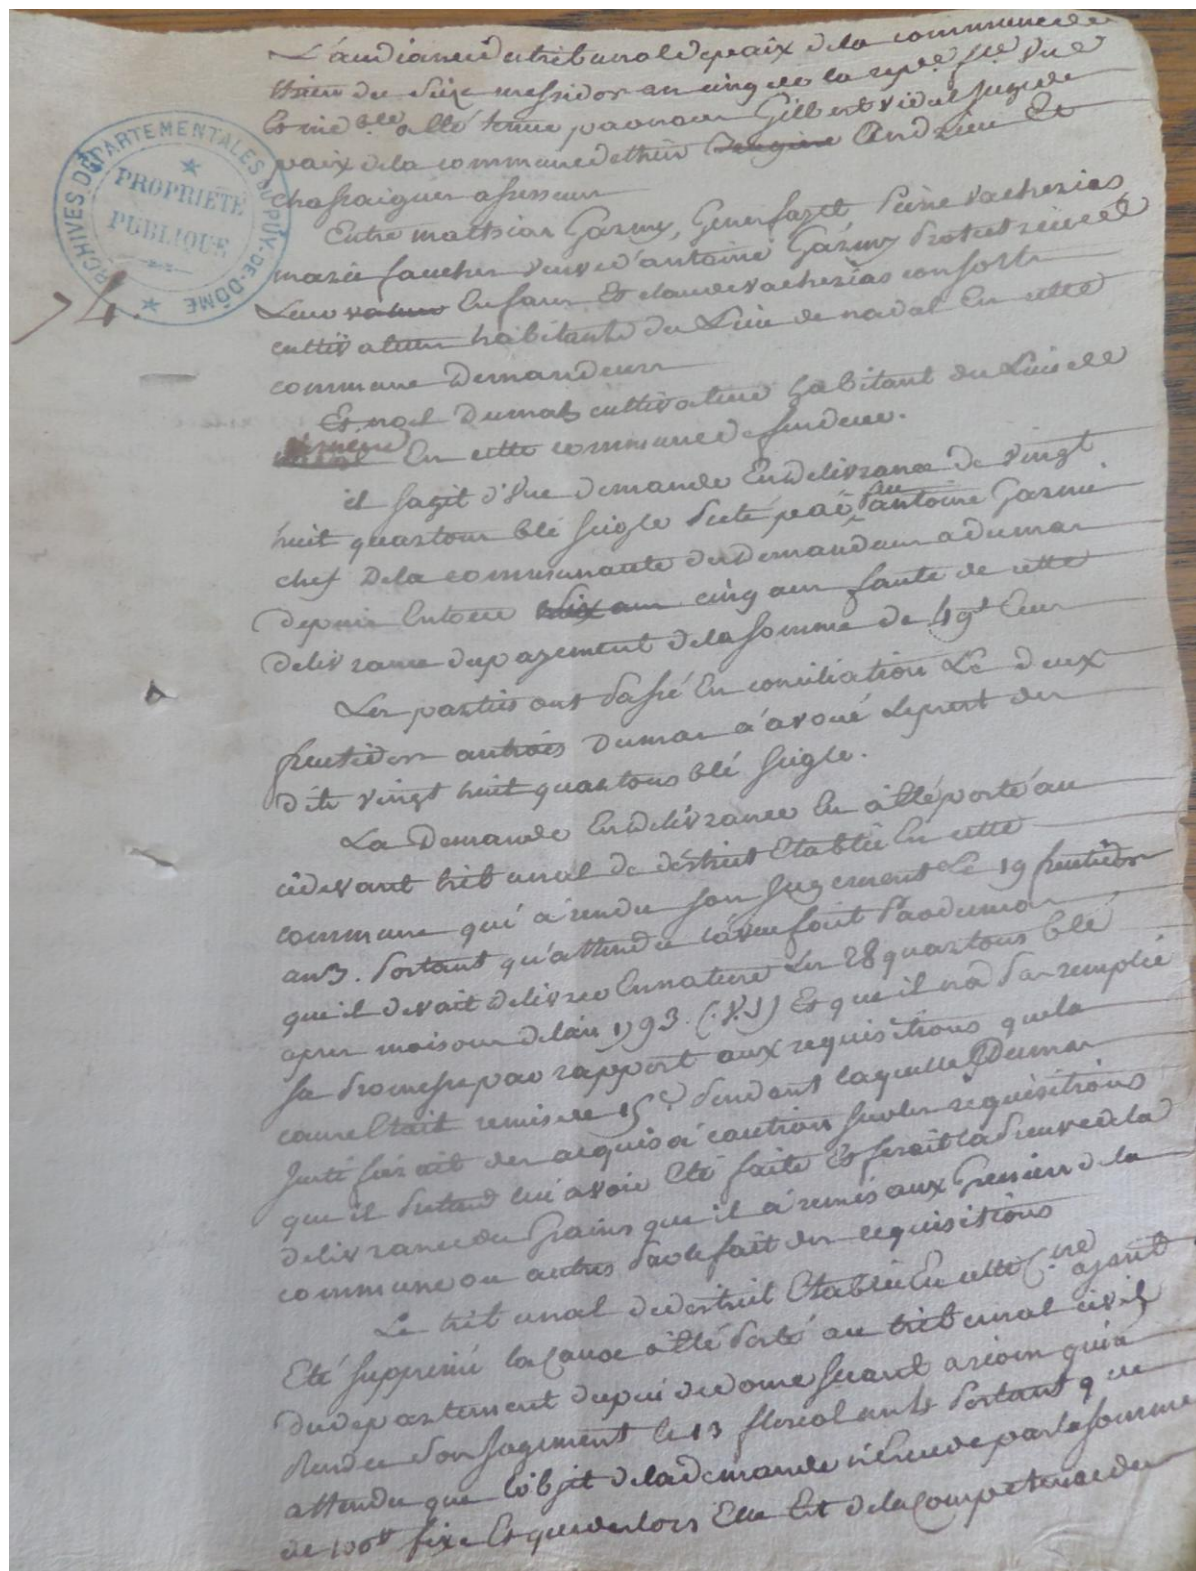 L'audiance du tribunal de paix de la commune de
thiers du dix messidor an cinq de la repe. fse. Vne
Et indble. a été tenue par nous Gilbert vidal juge de
paix de la commune de thiers Andrieu Et
chassaignes assesseurs
Entre mathieu Garmy, Genes fayet vacherias
marie faucher veuve d'antoine Garmy Protutrice de
Leurs Enfans Et claude vacherias consorts
cultivateurs habitants du Lieu de nadal En cette
commune Demandeurs
Et noel Dumas cultivateur habitant du Lieu de
En cette commune defendeur.
il sagit d'Une demande En delivrance de vingt
huit quartons blé seigle Preté par feu antoine Garmi
chef De la communauté des demandeurs a dumas
depuis Entour dix ans cinq ans faute de cette
delivrance du payement de la somme de 49lt Eur
Les parties ont Passé En conciliation Le deux
fructidor an trois Dumas a avoué Le pret des
dits vingt huit quartons blé seigle.
La Demande En delivrance En a été porté au
cidevant tribunal de district Etablie En cette
commune qui a rendu son jugement Le 19 fructidor
an 3. Portant qu'attendu l'aveu fait Par dumas
que il devait delivrer En nature Les 28 quartons blé
apres moisson de l'an 1793. (:V.S) Et que il n'a Pas remplie
sa Promesse par rapport aux requisitions que la
cause Etait remise de 15e. Pendant laquelle Dumas
Justifierait des acquis a caution sur les requisitions
que il Pretend lui avoir Eté faite Et ferait la Preuve de la
delivrance des Grains que il a remis aux Greniers de la
commune ou autres Par le fait des requisitions
Le tribunal de destrict Etablie En cette Cne ayant
Eté supprimé la Cause a été Porté au tribunal civil
du departement du pui de dome seant a riom qui a
Rendu Son Jugement le 13 floreal an 4 Portant que
attendu que l'objet de la demande n'Excede pas la somme
de 100lt fixe Et que des lors Elle Est de la Competence du
74.
ARCHIVES DÉPARTEMENTALES DU PUY-DE-DÔME
PROPRIÉTÉ
PUBLIQUE